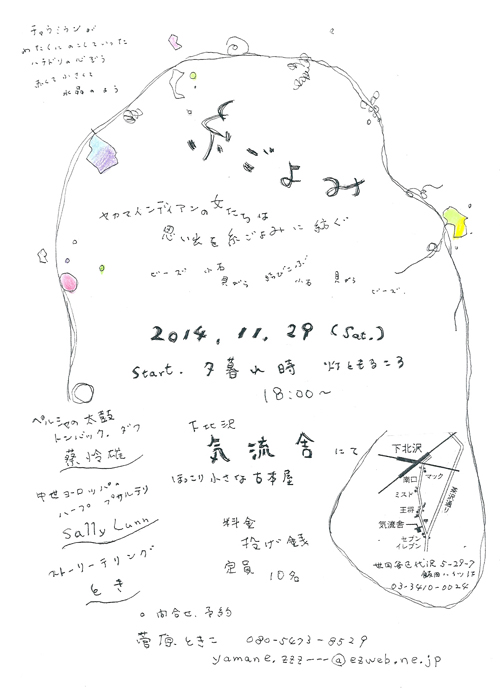 チャラミランが
めたくにのこしていった
ハチドリの心ぞう
あんて小さくて
水晶のよう
ぐごよみ
ヤカマインディアンの女たちは
思い出を糸ごよみに紡ぐ
ビーズ 小石 貝がら 結びこぶ 小石 貝がら ビーズ.
2014, 11, 29 (Sat.)
Start. 夕暮れ時 灯ともるころ
18:00~
ペルシャの太鼓
トンバック. ダフ
蔡怜雄
中世ヨーロッパの
ハープ プサルテリ
Sally Lunn
ストーリーテリング
とき
下北沢
気流舎 にて
ほっこり小さな古本屋
料金
投げ銭
定員 10名
下北沢
南口
マック
ミスド
王将
茶沢通り
気流舎
セブン
イレブン
世田谷区代沢5-29-7
飯田ハイツ1F
03-3410-0024
○ 問合せ. 予約
菅原ときこ 080-5473-8529
yamane.zzz---@ezweb.ne.jp